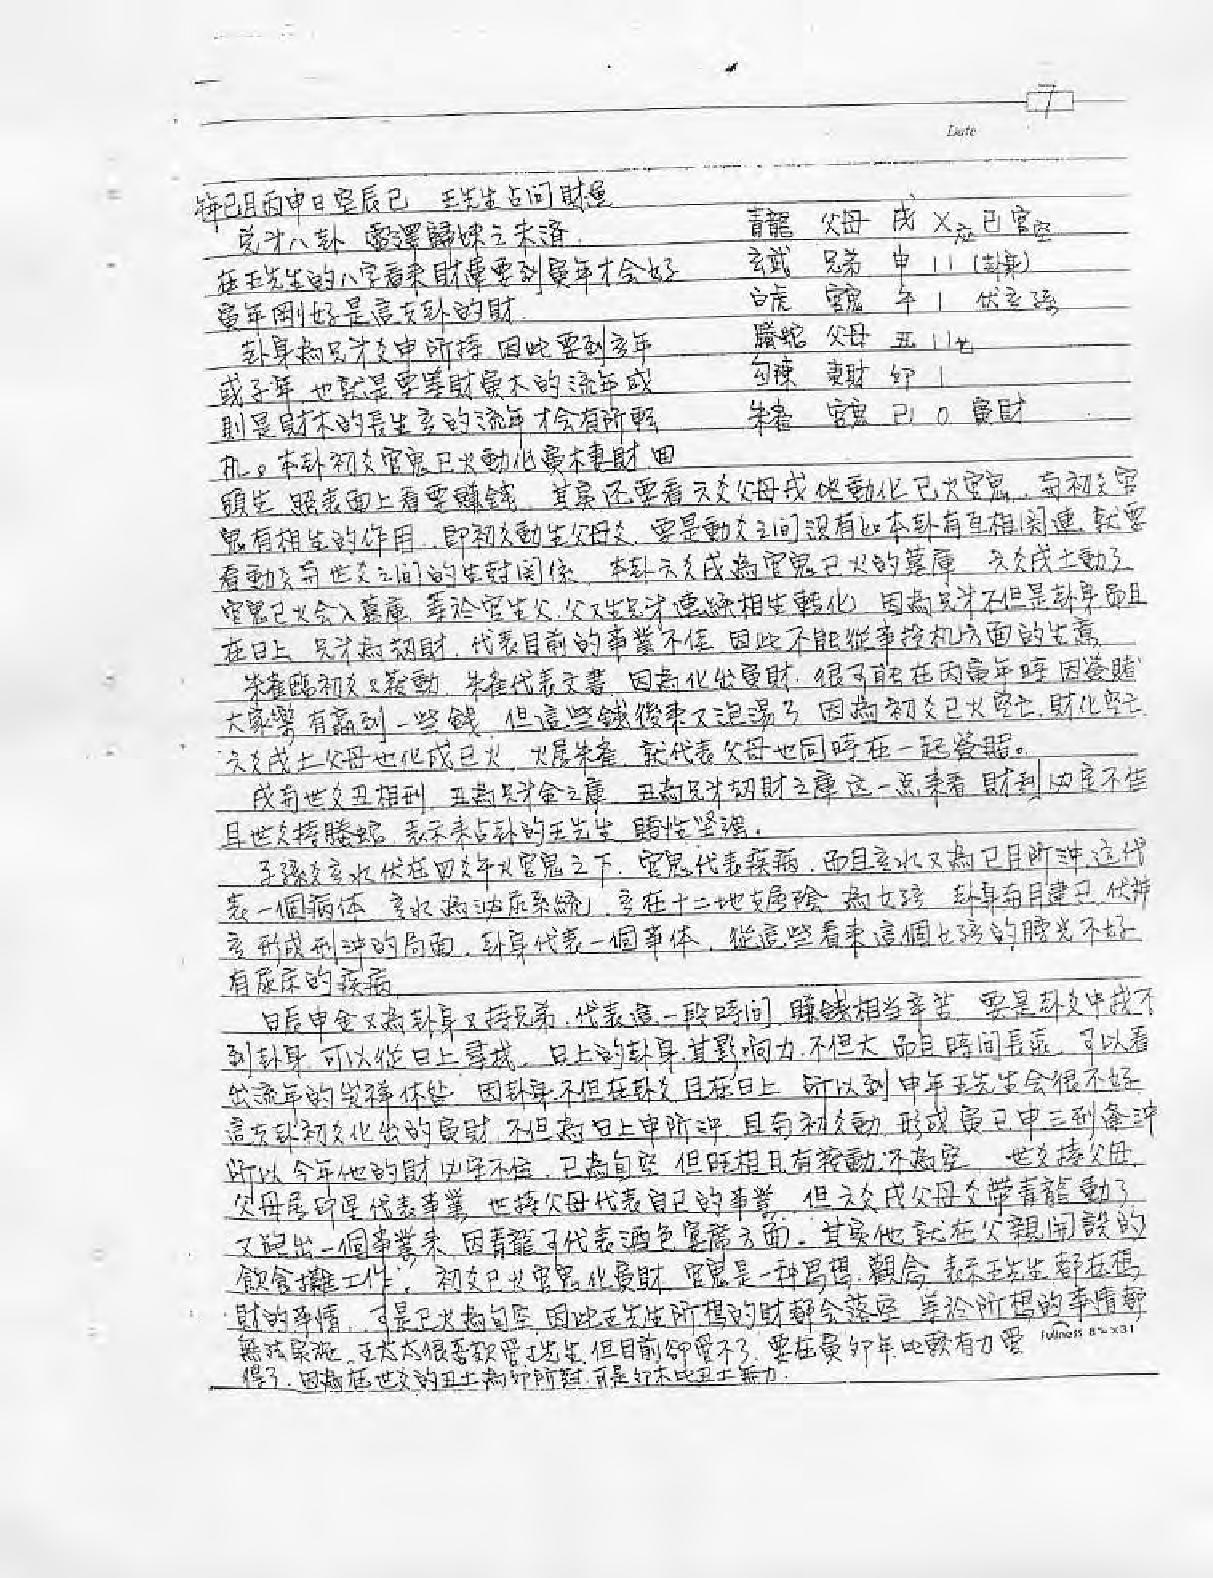 7
Date
年巳月丙申日空辰巳 王先生占问財運
兌卦八卦 雷澤歸妹之未濟
青龍 父母 戌 X 应 巳官空
在王先生的八字看来財運要到寅年才会好
玄武 兄弟 申 11 (卦身)
寅年剛好是這支卦的財
白虎 官鬼 午 1 伏亥孫
卦身為兄弟爻申所持 因此要到亥年
螣蛇 父母 丑 11世
或子年,也就是要等財寅木的流年或
勾陳 妻財 卯 1
則是財木的長生亥的流年才会有所轉
朱雀 官鬼 巳 0 寅財
机。本卦初爻官鬼巳火動化寅木妻財 回
頭生 照表面上看要賺錢 其实还要看六爻父母戌地動化巳火官鬼,与初爻官
鬼有相生的作用,即初爻動生父母爻,要是動爻之间没有如本卦有互相関連,就要
看動爻与世爻之间的生尅関係 本卦六爻戌為官鬼巳火的墓庫 六爻戌土動了
官鬼巳火会入墓庫 等於官生父,父又生兄弟(連續相生轉化) 因為兄弟不但是卦身而且
在日上 兄弟為刼財,代表目前的事業不佳 因此不能從事投机方面的生意
朱雀臨初爻又發動 朱雀代表文書 因為化出寅財 很可能在丙寅年時 因簽賭
大家樂有贏到一些錢 但這些錢後来又泡湯了 因為初爻巳火空亡,財化空亡
六爻戌土父母也化成巳火 火居朱雀 就代表父母也同時在一起簽賭。
戌与世爻丑相刑 丑為兄弟金之庫 丑為兄弟刼財之庫这一点来看 財利必定不佳
且世爻持螣蛇 表示来占卦的王先生 賭性坚强。
子孫爻亥水伏在四爻午火官鬼之下,官鬼代表疾病,而且亥水又為巳月所沖 這代
表一個病体 亥水為泌尿系統,亥在十二地支屬陰 為女孩 卦身与月建巳,伏神
亥形成刑沖的局面,卦身代表一個事体,從這些看来這個女孩的膀光不好
有尿床的疾病
日辰申金又為卦身又持兄弟,代表這一段時间 賺錢相当辛苦 要是卦爻中找不
到卦身,可以從日上尋找 日上的卦身,其影响力,不但大 而且時间長遠 可以看
出流年的災祥休咎 因卦身不但在卦爻且在日上 所以到申年王先生会很不好
這支卦初爻化出的寅財 不但為日上申所沖 且与初爻動 形成寅巳申三刑逢沖
所以今年他的財必守不住,巳為旬空 但旺相且有發動,不為空 世爻持父母
父母居卯星代表事業 世持父母代表自己的事業 但六爻戌父母爻帶青龍動了
又跑出一個事業来 因青龍可代表酒色宴席方面。其实他就在父親開設的
飲食攤工作。 初爻巳火官鬼化寅財 官鬼是一种思想,觀念 表示王先生都在想
財的事情,可是巳火為旬空 因此王先生所想的財都会落空 等於所想的事情都
無法实施,王太太很喜歡愛王先生 但目前卻愛不了 要在寅卯年比較有力愛
fullness 8% x31
得了,因為在世爻的丑土為卯所尅 可是卯木比丑土無力.